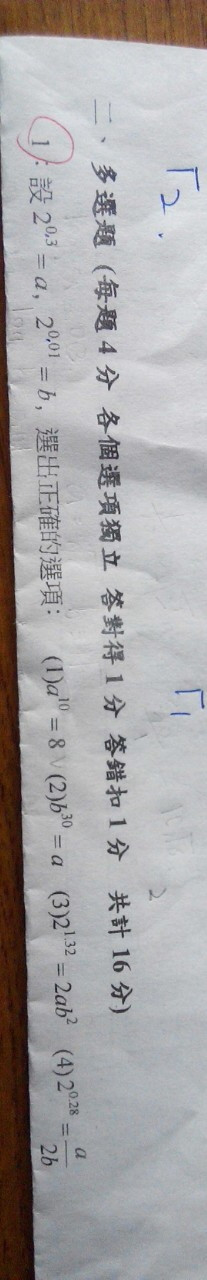 二、多選題(每題 4 分 各個選項獨立 答對得 1 分 答錯扣 1 分 共計 16 分)
1. 設 2^{0.3} = a, 2^{0.01} = b, 選出正確的選項: (1)a^{10} = 8 (2)b^{30} = a (3)2^{1.32} = 2ab^2 (4)2^{0.28} = \frac{a}{2b}